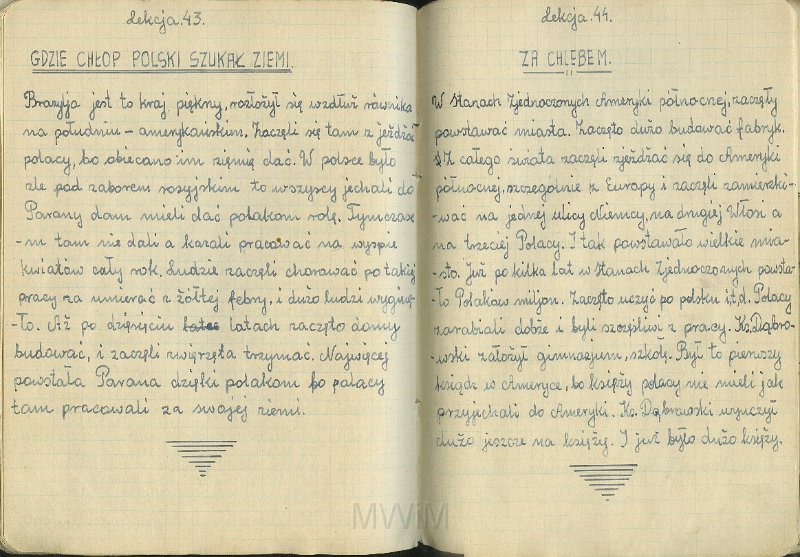 Lekcja 43.
GDZIE CHŁOP POLSKI SZUKAŁ ZIEMI.
Brazylja jest to kraj piękny, rozłożył się wzdłuż równika
na południu – amerykańskim. Zaczęli się tam z jeżdżać
polacy, bo obiecano im ziemię dać. W polsce było
źle pod zaborem rosyjskim to wszyscy jechali do
Parany dam mieli dać polakom rolę. Tymczase
-m tam nie dali a kazali pracować na wyspie
kwiatów cały rok. Ludzie zaczęli chorować po takiej
pracy za umierać z żółtej febry, i dużo ludzi wyginę-
-ło. Aż po dzięsięciu latach zaczęto domy
budować, i zaczęli zwierzęta trzymac. Najwęcej
powstała Parana dzięki polakom bo polacy
tam pracowali za swojej ziemi.
Lekcja 44.
ZA CHLEBEM.
W Stanach Zjednoczonych Ameryki północnej, zaczęły
powstawać miasta. Zaczęto dużo budować fabryk.
Z całego świata zaczęli zjeżdżać się do Ameryki
północnej, szczególnie z Europy i zaczęli zamieszki-
-wać na jednej ulicy Niemcy, na drugiej Włosi a
na trzeciej Polacy. I tak powstawało wielkie mia-
-sto. Już po kilka lat w Stanach Zjednoczonych powsta-
-ło Polaków miljon. Zaczęto uczyć po polsku i.t.d. Polacy
zarabiali dobrze i byli szczęśliwi z pracy. Ks. Dąbro-
-wski założył gimnazjum, szkołę. Był to pierwszy
ksiądz w Ameryce, bo księży polacy nie mieli jak
przyjechali do Ameryki. Ks. Dąbrowski wyuczył
dużo jeszcze na księży. I już było dużo księży.
MWiM